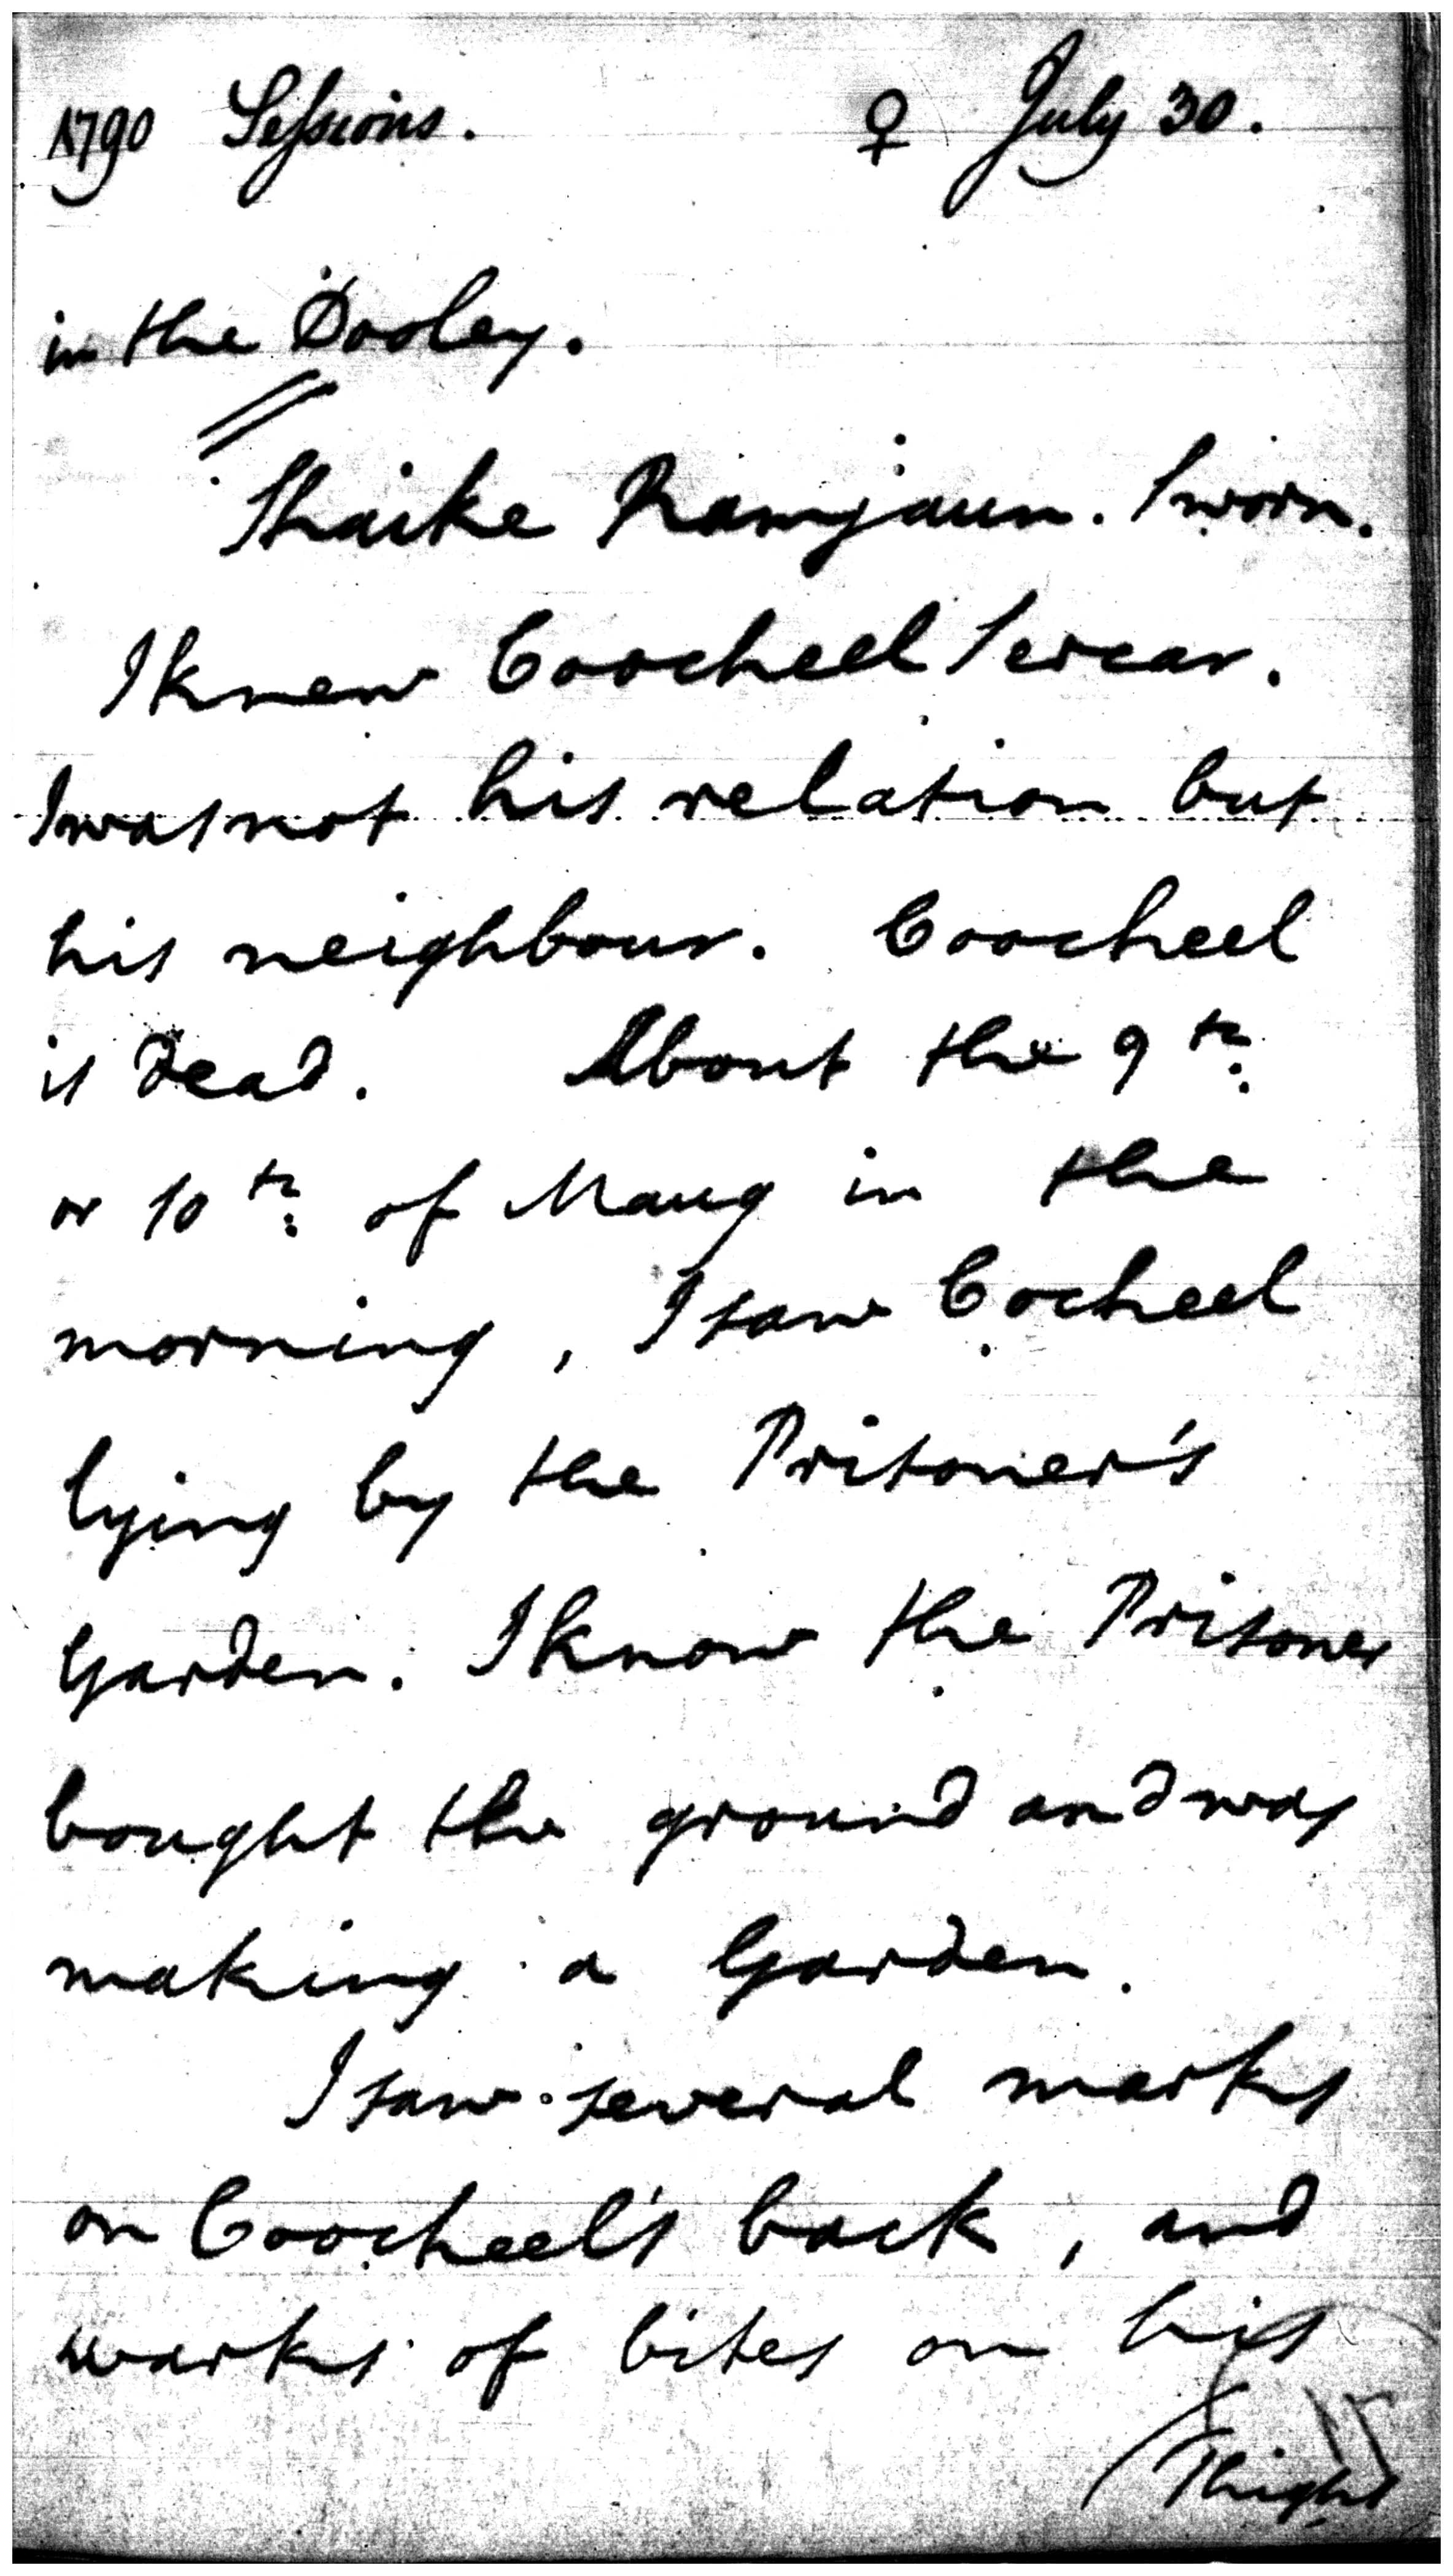 1790 Sessions. ♀ July 30.
in the Dooley.
Shaike Ramjaun. Sworn.
I knew Coocheel Sercar.
I was not his relation but
his neighbour. Coocheel
is dead. About the 9th
or 10th of Maug in the
morning, I saw Cocheel
lying by the Prisoner's
Garden. I know the Prisoner
bought the ground and was
making a Garden.
I saw several marks
on Coocheel's back, and
marks of bites on his
Thighs